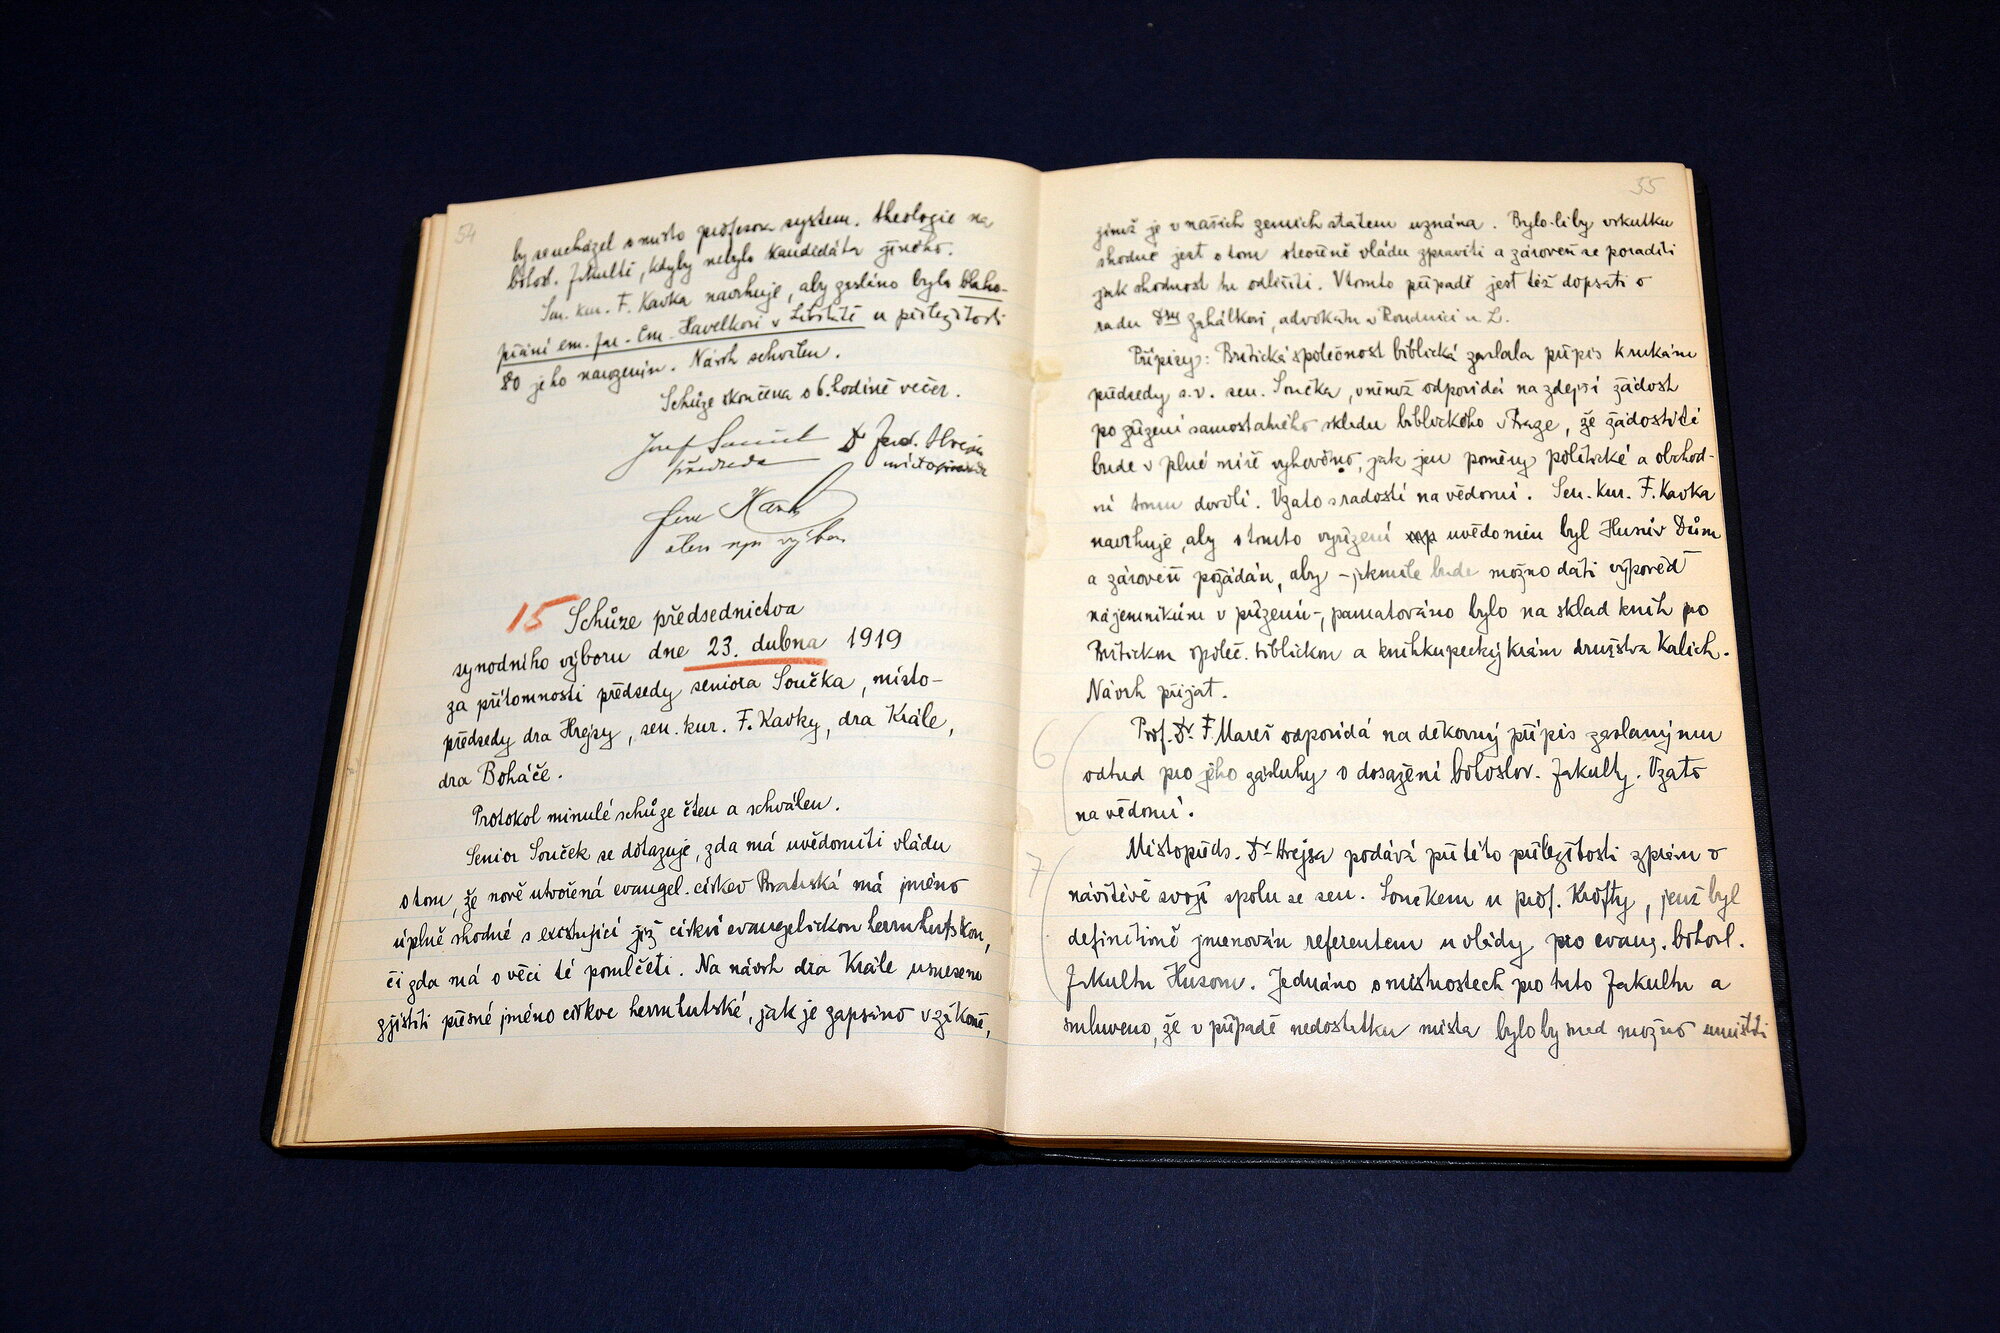 54
by se ucházel o místo profesora system. theologie na
bohosl. fakultě, kdyby nebylo kandidáta jiného.
Sen. kur. F. Kavka navrhuje, aby zasláno bylo blaho-
přání em. far. Em. Havelkovi v Libštátě u příležitosti
80 jeho narozenin. Návrh schválen.
Schůze skončena o 6. hodině večer.
Josef Souček Dr. Ferd. Hrejsa
předseda místopředseda
Kavka
člen syn výboru
15 Schůze předsednictva
synodního výboru dne 23. dubna 1919
za přítomnosti předsedy seniora Součka, místo-
předsedy dra Hrejsy, sen. kur. F. Kavky, dra Krále,
dra Boháče.
Protokol minulé schůze čten a schválen.
Senior Souček se dotazuje, zda má uvědomiti vládu
o tom, že nově utvořená evangel. církev Bratrská má jméno
úplně shodné s existující již církví evangelickou herrnhutskou,
či zda má o věci té pomlčeti. Na návrh dra Krále usneseno
zjistiti přesné jméno církve herrnhutské, jak je zapsáno v zákoně,
55
jímž je v našich zemích státem uznána. Bylo-li by vskutku
shodné jest o tom otevřeně vládu zpraviti a zároveň se poraditi
jak shodnost tu odlišiti. V tomto případě jest též dopsati o
radu Dru Zahálkovi, advokátu v Roudnici n L.
Přípisy: Britická společnost biblická zaslala přípis k rukám
předsedy s.v. sen. Součka, v němž odpovídá na zdejší žádost
po zřízení samostatného skladu biblického v Praze, že žádosti té
bude v plné míře vyhověno, jak jen poměry politické a obchod-
ní tomu dovolí. Vzato s radostí na vědomí. Sen. kur. F. Kavka
navrhuje, aby o tomto vyřízení uvědomen byl Husův Dům
a zároveň požádán, aby - jakmile bude možno dáti výpověď
nájemníkům v přízemí -, pamatováno bylo na sklad knih po
Britickou společ. biblickou a knihkupecký krám družstva Kalich.
Návrh přijat.
6
Prof. Dr. F Mareš odpovídá na děkovný přípis zaslaný mu
odtud pro jeho zásluhy o dosažení bohoslov. fakulty. Vzato
na vědomí.
7
Místopřds. Dr Hrejsa podává při této příležitosti zprávu o
návštěvě svojí spolu se sen. Součkem u prof. Krofty, jenž byl
definitivně jmenován referentem u vlády pro evang. bohosl.
fakultu Husovu. Jednáno o místnostech pro tuto fakultu a
smluveno, že v případě nedostatku místa bylo by snad možno umístiti